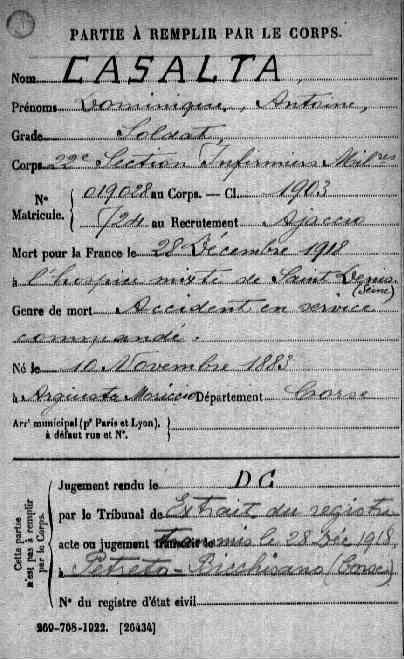 PARTIE À REMPLIR PAR LE CORPS.
Nom CASALTA
Prénoms Dominique, Antoine,
Grade Soldat,
Corps 22e Section Infirmiers Milres
No Matricule. 019028 au Corps. — Cl. 1903
724 au Recrutement Ajaccio
Mort pour la France le 28 Décembre 1918
à l'hospice mixte de Saint Denis (Seine)
Genre de mort Accident en service
commandé.
Né le 10 Novembre 1883
à Argiusta Moriccio Département Corse
Arrt municipal (pr Paris et Lyon),
à défaut rue et No.
Cette partie n'est pas à remplir par le Corps.
Jugement rendu le DC
par le Tribunal de Extrait du registre
acte ou jugement transmis le 28 Déc 1918
à Petreto-Bicchisano (Corse)
No du registre d'état civil
269-708-1922. [26434]